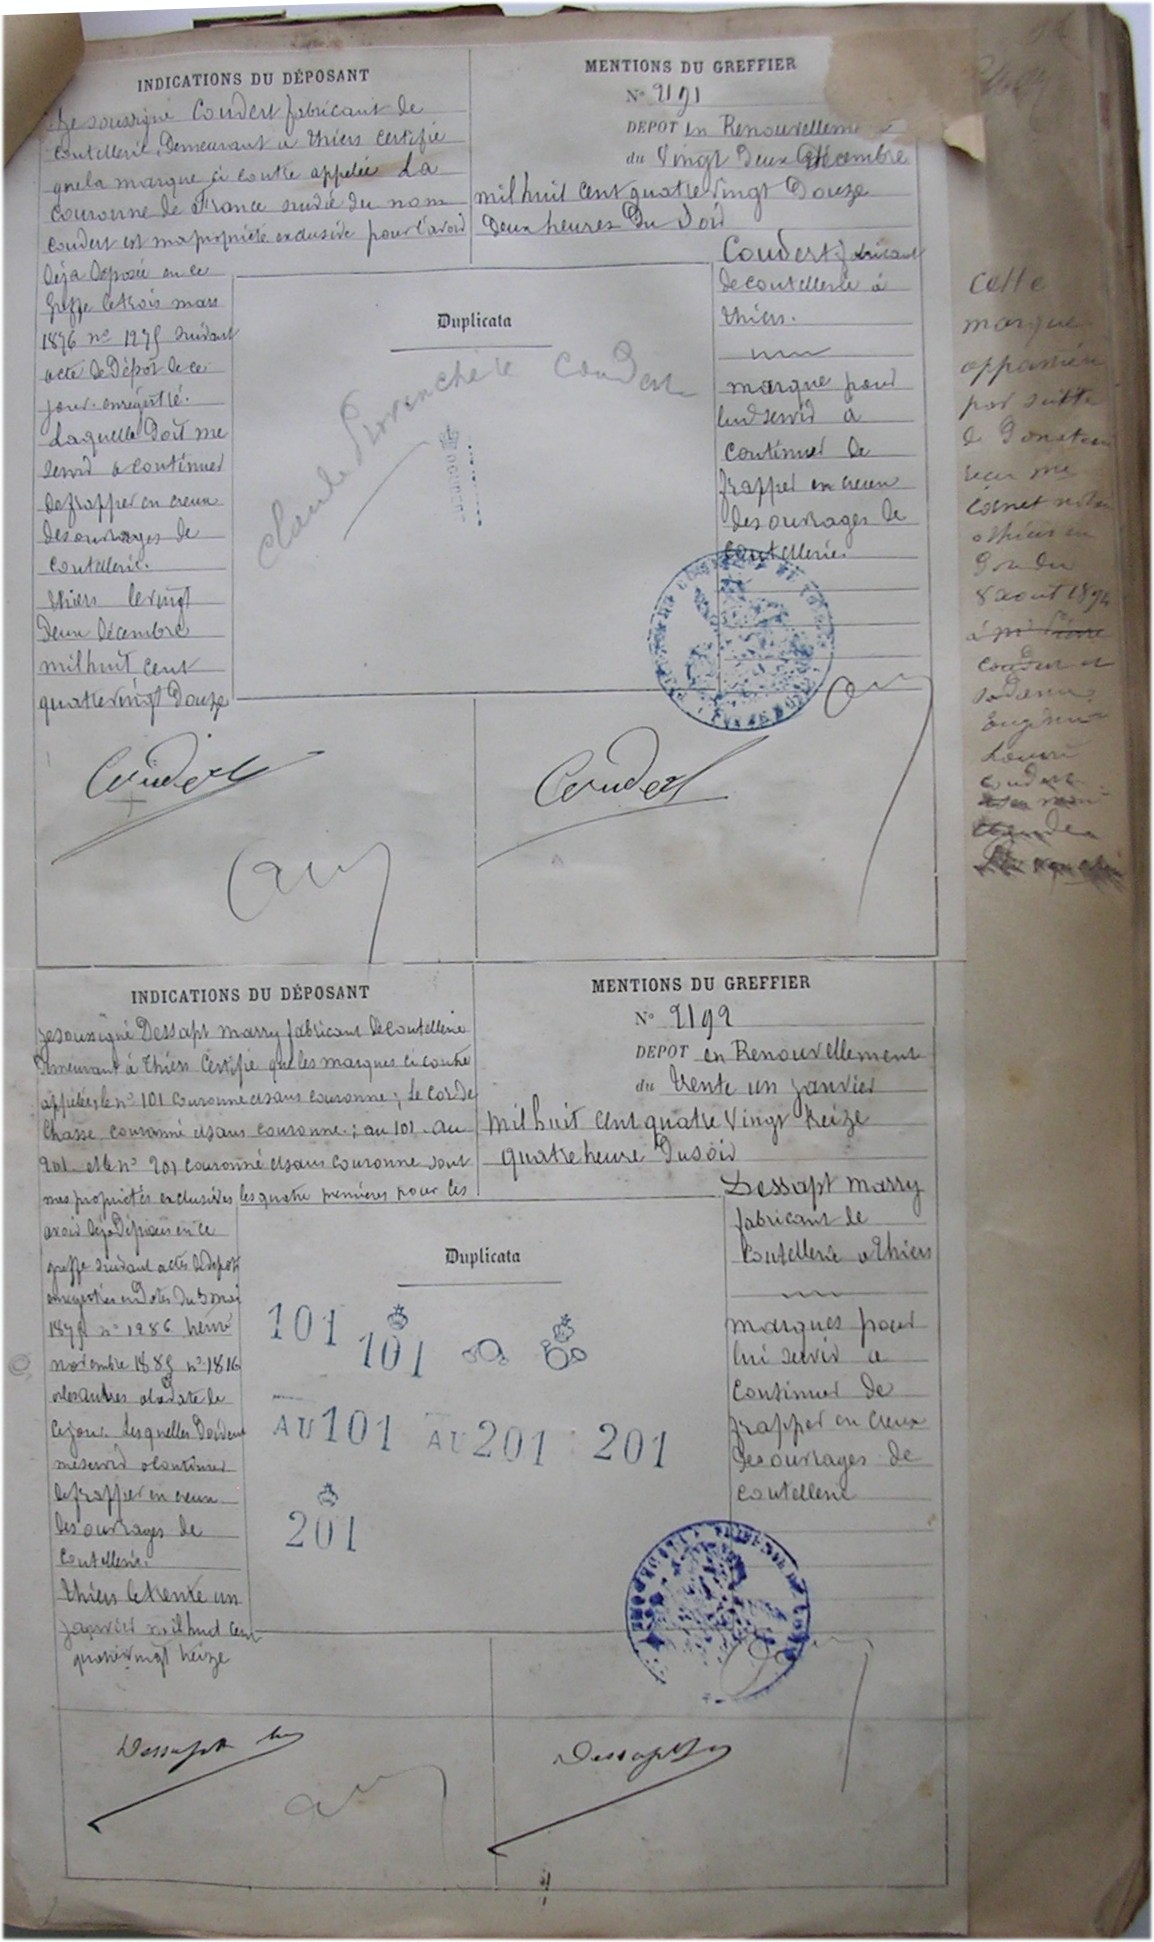 INDICATIONS DU DÉPOSANT
Je soussigné Coudert fabricant de
Coutellerie, Demeurant a thiers certifie
que la marque ci contre appelée La
Couronne de France suivie du nom
Coudert est ma propriété exclusive pour l'avoir
Déja Deposée en ce
Greffe le trois mars
1876 no suivant
acte de Dépôt de ce
jour. enregistré.
Laquelle Doit me
servir a continuer
de frapper en creux
des ouvrages de
Coutellerie.
thiers le vingt
Deux Décembre
mil huit cent
quatre vingt Douze
Coudert
MENTIONS DU GREFFIER
No 2191
DÉPOT en Renouvellement
du Vingt Deux Décembre
mil huit cent quatre vingt Douze
Deux heures Du Soir
Coudert fabricant
de coutellerie à
thiers.
marque pour
lui servir a
continuer de
frapper en creux
des ouvrages de
Coutellerie.
Duplicata
Claude Coudert
COUDERT
Coudert
Cette
marque
appartient
par suite
de Donation
me
notaire
a thiers en
8 aout
Coudert et
INDICATIONS DU DÉPOSANT
Je soussigné Dessapt marry fabricant de Coutellerie
Demeurant à thiers Certifie que les marques ci contre
appelées le no 101 Couronné et sans couronne; Le Cor de
Chasse couronné et sans couronne; au 101. au
201 et le no 201 couronné et sans couronne sont
mes propriétés exclusives les quatre premières pour les
avoir déja Déposées en ce
greffe suivant actes de depot
enregistrés en Dates Du 5 mai
no 1286
novembre no 1816
et les autres a la Date de
ce jour. Lesquelles Doivent
me servir a continuer
de frapper en creux
Des ouvrages de
Coutellerie.
thiers le trente un
janvier mil huit cent
quatre vingt treize
Dessapt
MENTIONS DU GREFFIER
No 2192
DEPOT en Renouvellement
du trente un janvier
mil huit cent quatre Vingt treize
quatre heure Du soir
Dessapt marry
fabricant de
Coutellerie a thiers
marques pour
lui servir a
continuer de
frapper en creux
des ouvrages de
coutellerie
Duplicata
101
101
AU 101
AU 201
201
201
Dessapt